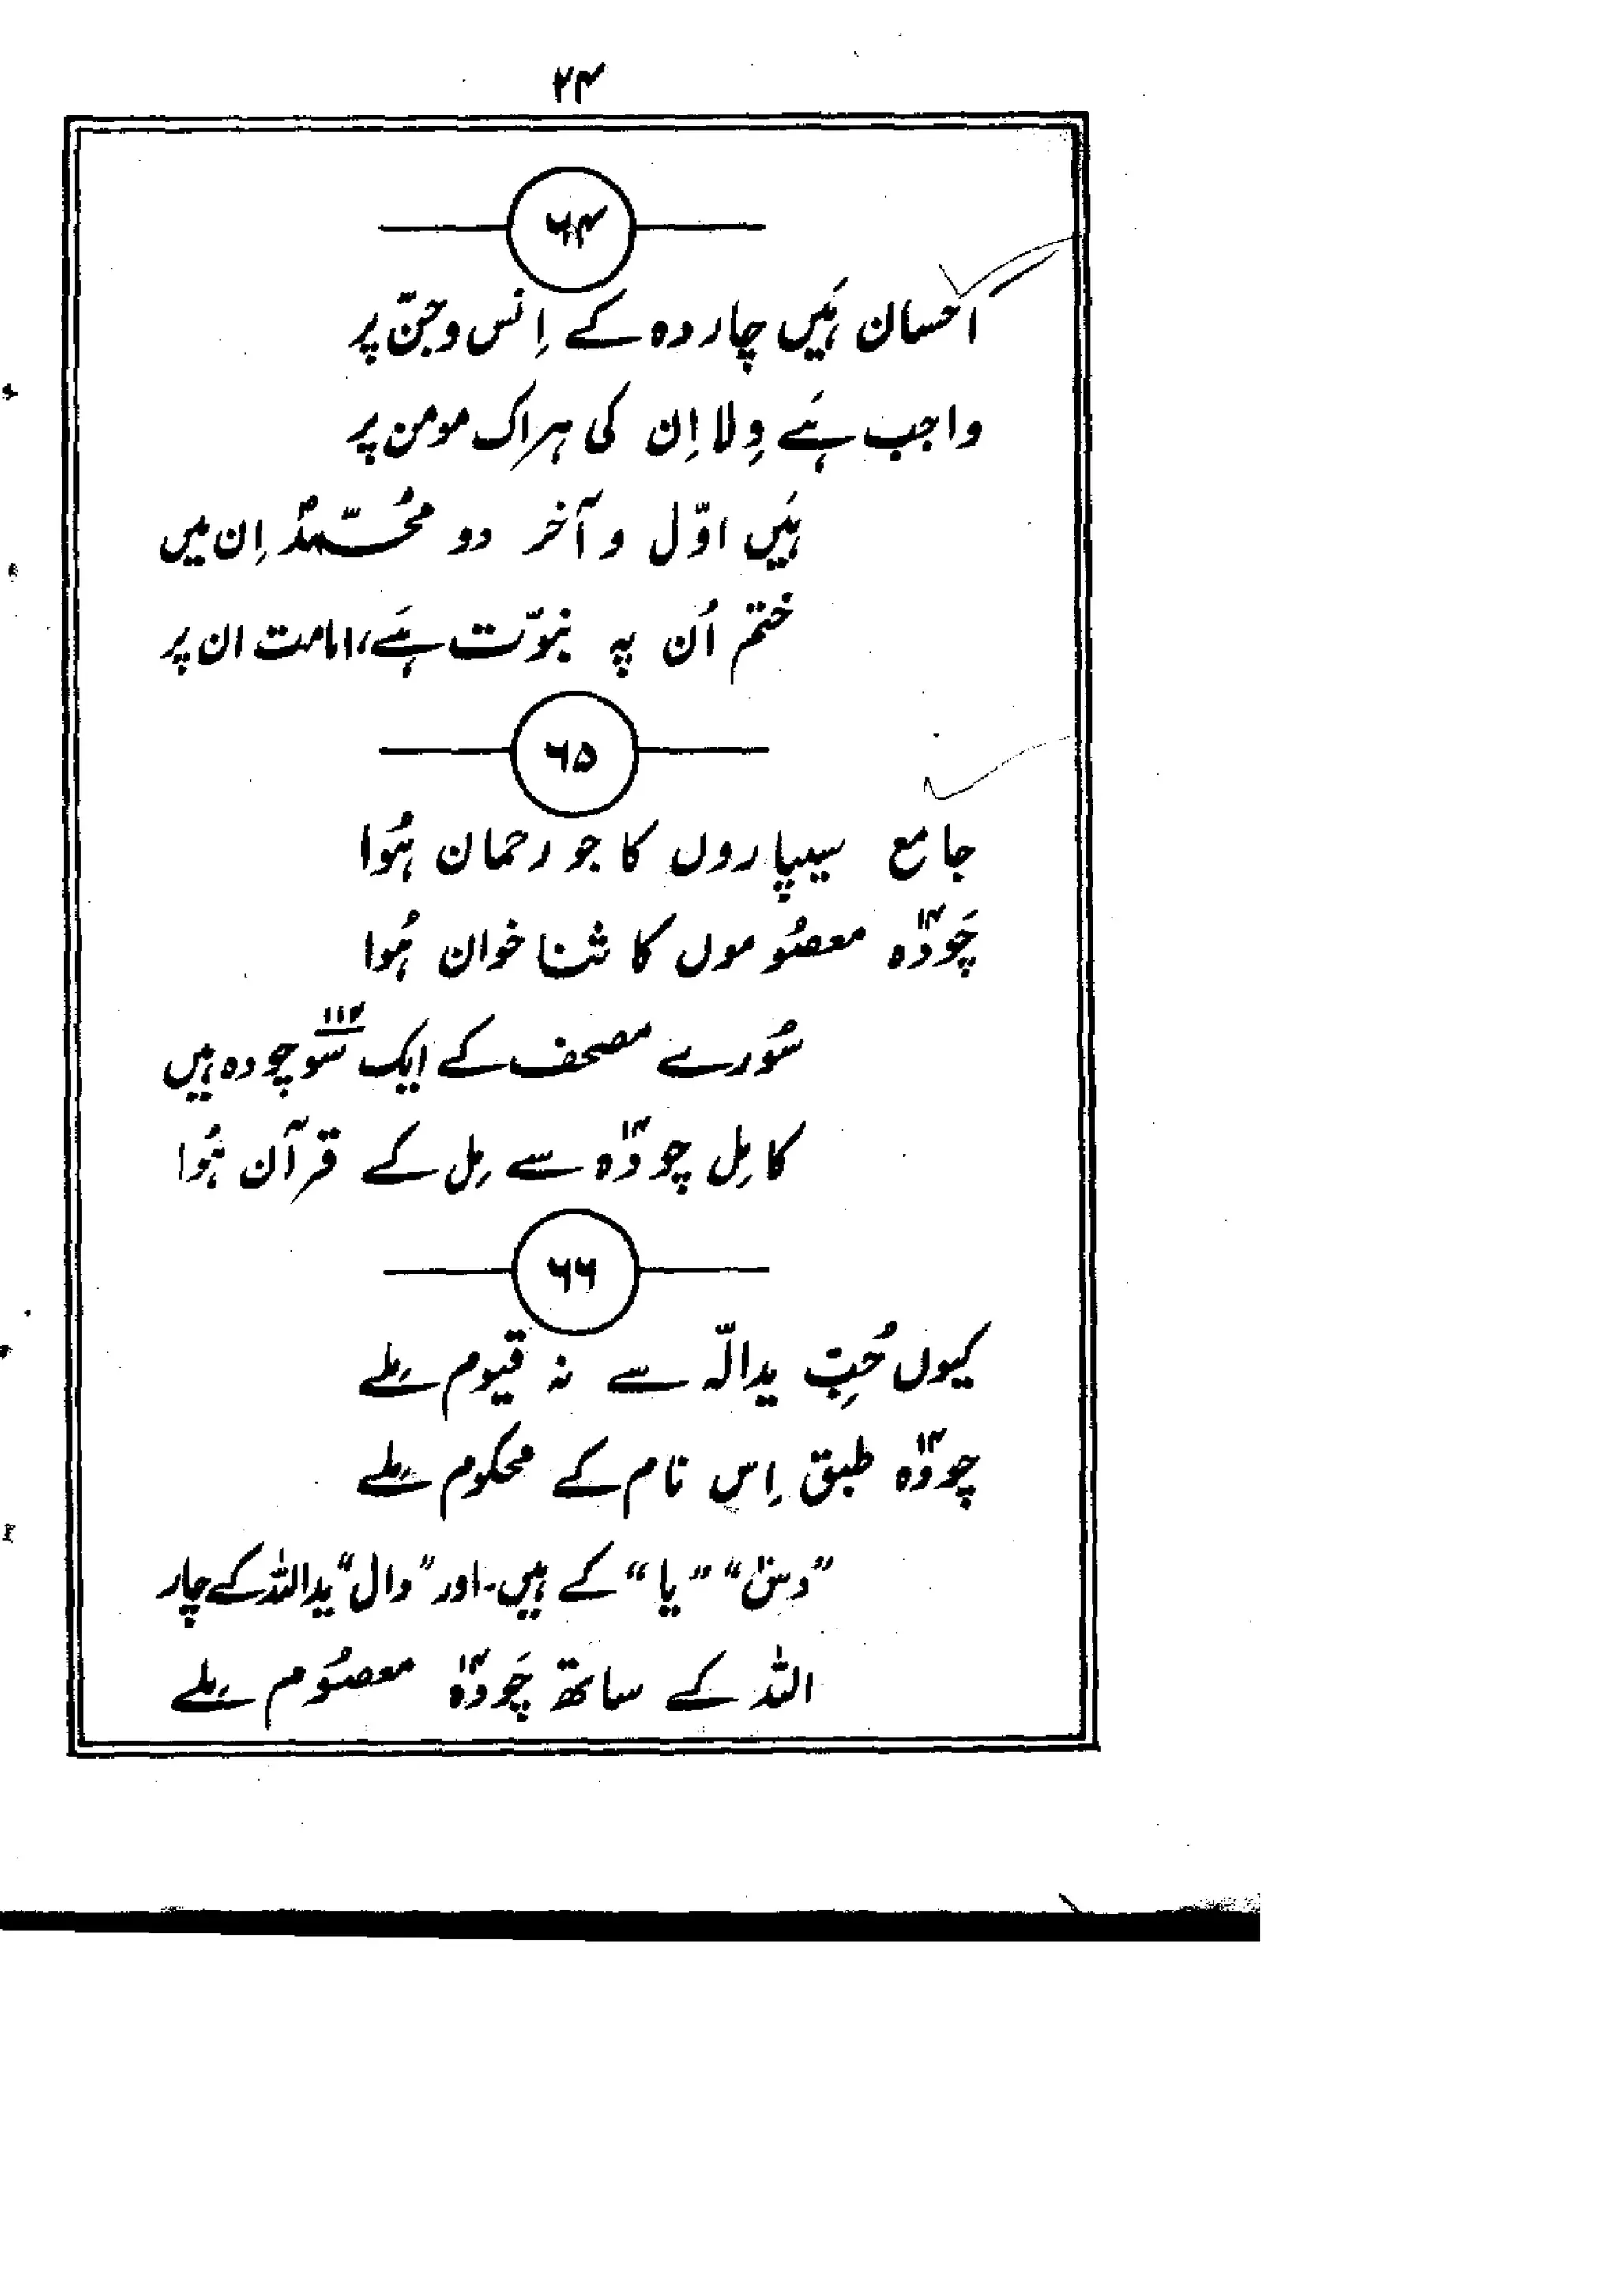 ۲۴
۶۴
احسان ہَیں چاردہ کے اِنس وجِنّ پر
واجب ہَے وِلا اِن کی ہراک مومن پر
ہَیں اوّل و آخر دو محُمّدؐ اِن میں
ختم اُن پہ نبوّت ہَے، امامت ان پر
۶۵
جامع سیپاروں کا جو رحمان ہُوا
چَودہ۱۴ معصوُموں کا ثنا خوان ہُوا
سُورے مصحف کے ایک سَو چودہ۱۱۴ ہیں
کامِل چودہ۱۴ سے مِل کے قرآن ہُوا
۶۶
کیوں حُبِّ یدالّہ سے نہ قیوم مِلے
چودہ۱۴ طبق اِس نام کے محکوم مِلے
”دس۱۰“ ”یا“ کے ہیں۔ اور ”دال“ یداللہ کے چار
اللہ کے ساتھ چَودہ۱۴ معصوُم مِلے